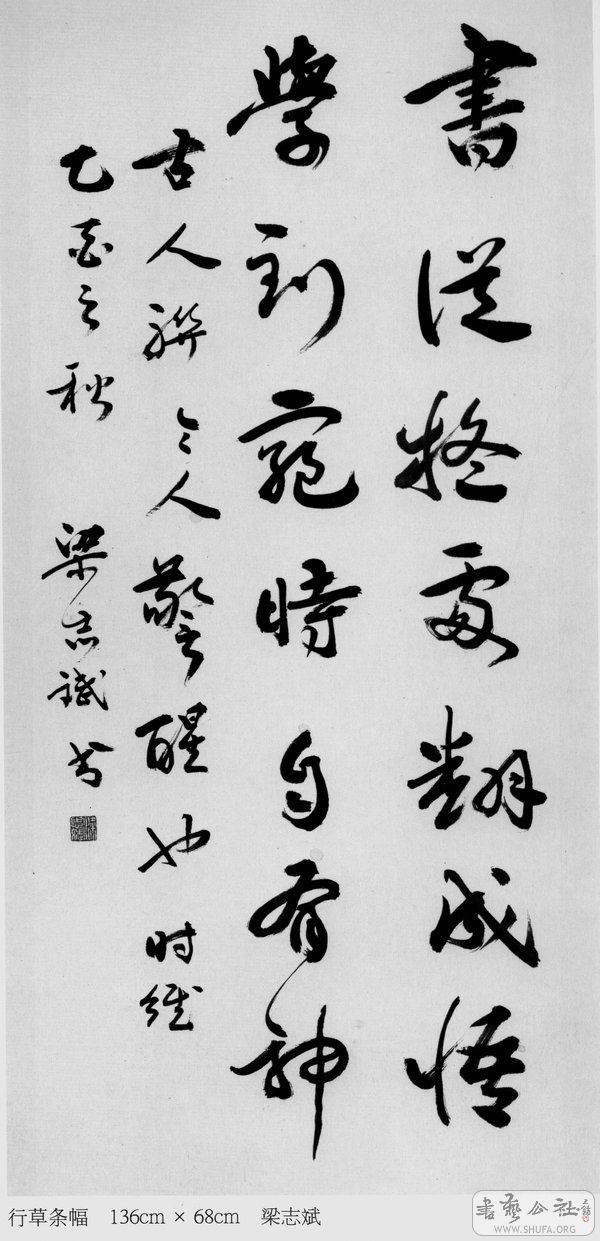 書從疑處翻成悟
學到窮時自有神
古人聯今人警醒也时維
乙之秋 梁志斌书
行草条幅 136cm × 68cm 梁志斌
書藝公社
WWW.SHUFA.ORG